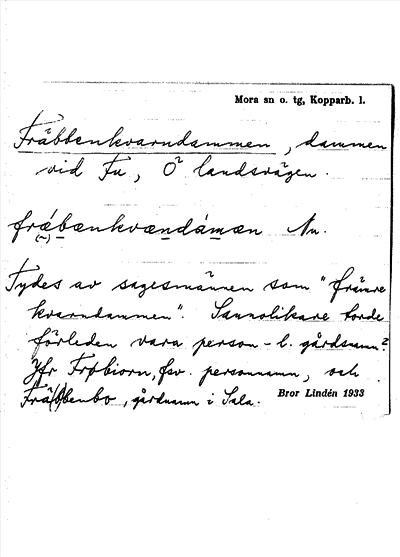 Mora sn o. tg, Kopparb. l.
Fräbbenkvarndammen, dammen
vid Fu, O² landsvägen.
frǽbænkvændámæn Nu.
(~)
Tydes av sagesmännen som "främre
kvarndammen". Sannolikare torde
förleden vara person- l. gårdsnamn?
Jfr Frøbiorn, fsv. personnamn, och
Frä(b)benbo, gårdnamn i Sala.
Bror Lindén 1933